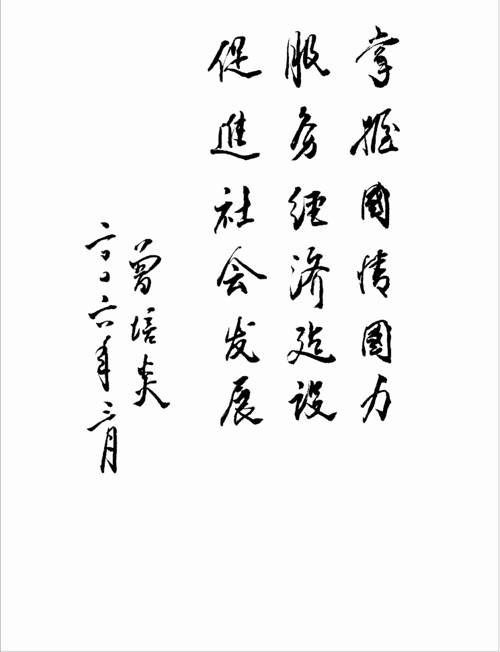 掌握國情國力
服务经济建设
促進社会发展
曾培炎
二〇〇六年二月